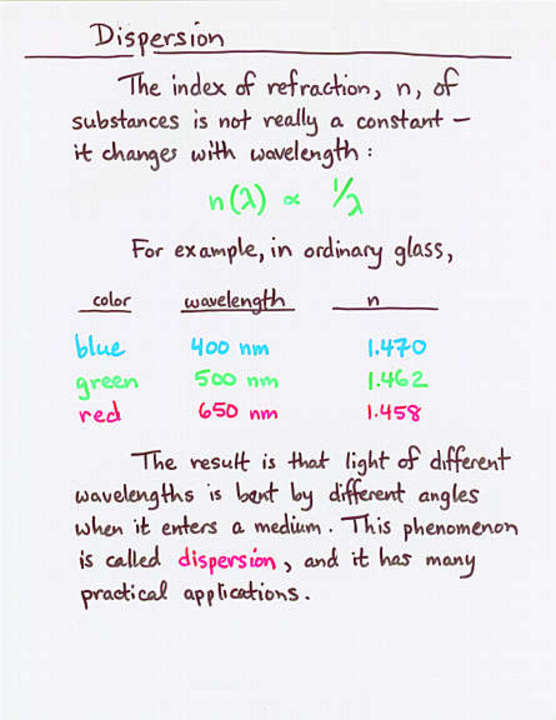 Dispersion
The index of refraction, n, of
substances is not really a constant –
it changes with wavelength :
n(λ) ∝ 1/λ
For example, in ordinary glass,
color wavelength n
blue 400 nm 1.470
green 500 nm 1.462
red 650 nm 1.458
The result is that light of different
wavelengths is bent by different angles
when it enters a medium. This phenomenon
is called dispersion, and it has many
practical applications.